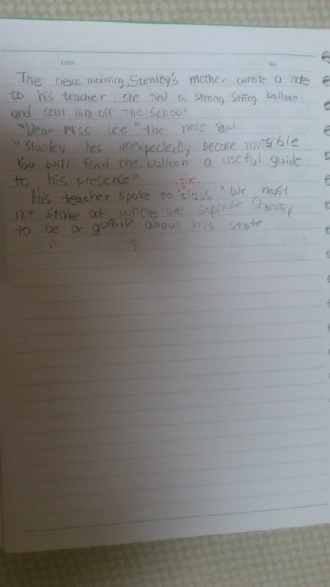 Date No
The next morning, Stenley's mother wrote a note
to his teacher she tied a strong string balloon
and sent him off The School
"Dear Miss Lee" the note said
"Stanley hes unexpectedly become invisible
You will find the balloon a useful guide
to his presence"
the
His teacher spoke to class "We must
not stare at where we suppose Stanley
to be or gossip about his state